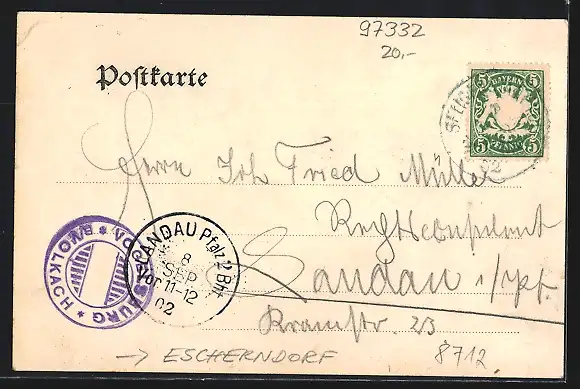 97332
20,-
Postkarte
5 BAYERN 5
5 PFENNIG 5
02
Herrn Joh Fried Müller
Rechtsconsulent
Landau i/Pf.
Kramstr. 23
LANDAU Pfalz 2 Bhf.
8
SEP
Vor 11-12
02
VOLKACH
BURG
→ ESCHERNDORF
8712